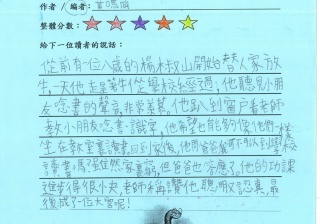 作者／編者：
整體分數：
給下一位讀者的說話：
從前有一位八歲的楊椒山開始替人家放
牛，一天他走 牛從學校 經過，他聽見小朋
友唸書的聲音，非常羨慕，他趴到窗戶看老師
教小朋友唸書、識字，他希望也能夠像他們一樣
坐在教室裏讀書，回到家後，他
讀書，雖然家裏窮，但爸爸也答應了，他的功課
進步得很小夫，老師稱讚他聰明又認真，最
後成了一位大官呢！